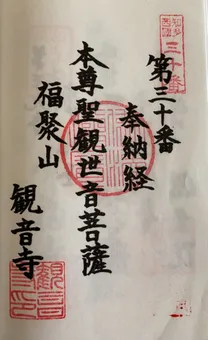 第三十番
奉納経
本尊聖観世音菩薩
福聚山
観音寺
三十番